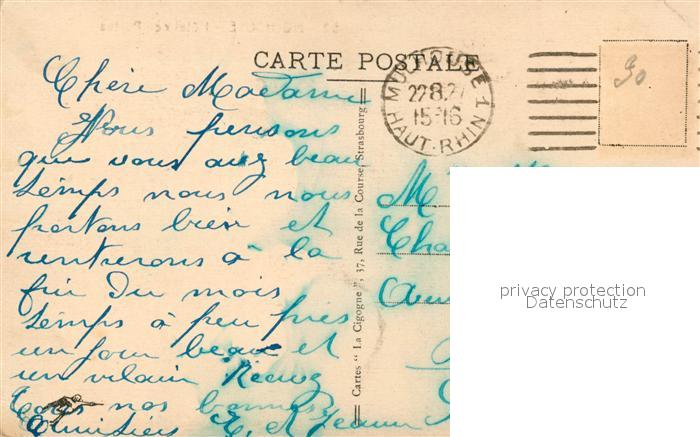 CARTE POSTALE
MULHOUSE 1
22.8.2
15*16
HAUT-RHIN
90
Chère Madame
Nous pensons
que vous avez beau
temps nous nous
portons bien et
rentrerons à la
fin du mois
temps à peu près
un jour beau et
un vilain Recevez
Tous nos bonnes
Amitiés et Jeanne
Cartes " La Cigogne ", 37, Rue de la Course, Strasbourg
M
Cha
privacy protection
Datenschutz